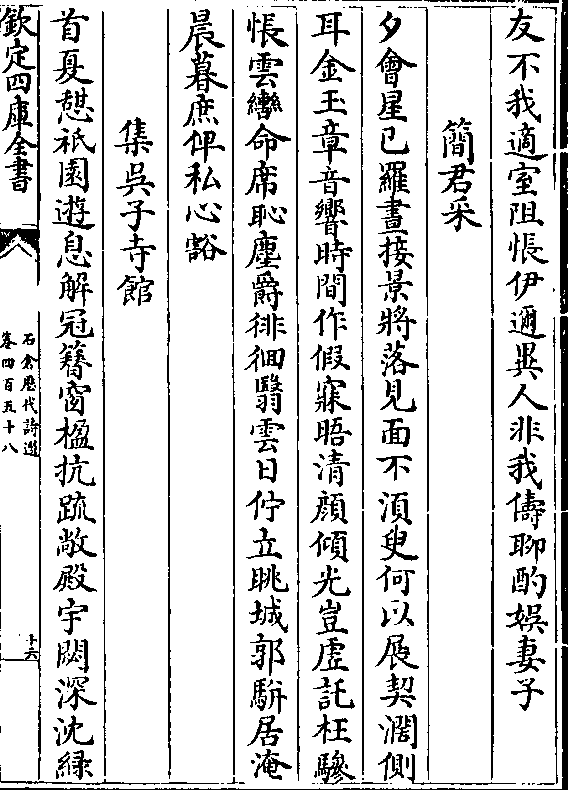 友不我適室阻悵伊邇異人非我儔聊酌娯妻子
簡君采
夕會星已羅晝接景將落見面不湏臾何以展契濶側
耳金玉章音響時間作假寐晤清顔傾光豈虚託枉驂
悵雲轡命席恥塵爵徘徊翳雲日佇立眺城郭駢居淹
晨暮庶俾私心豁
集吳子寺館
首夏憇祇園遊息解冠簪窗楹抗疏敞殿宇閟深沈緑
欽定四庫全書
石倉歴代詩選
卷四百五十八
十六